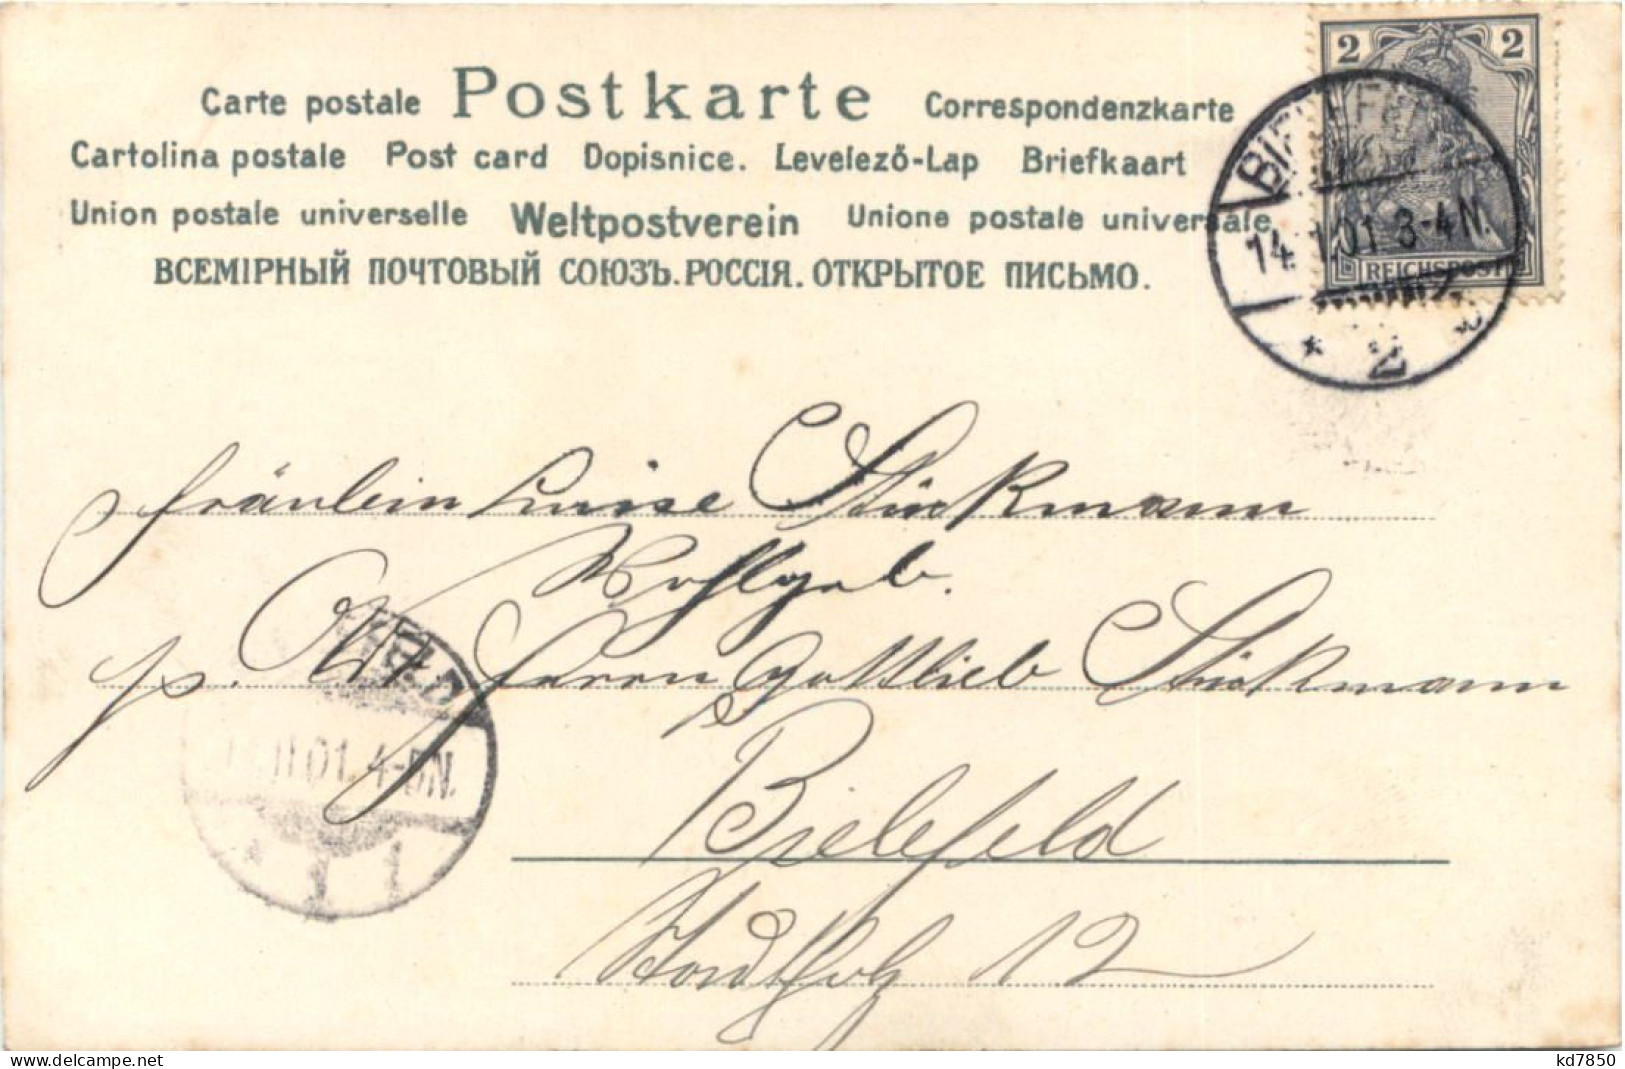 Carte postale Postkarte Correspondenzkarte
Cartolina postale Post card Dopisnice. Levelező-Lap Briefkaart
Union postale universelle Weltpostverein Unione postale universale
ВСЕМІРНЫЙ ПОЧТОВЫЙ СОЮЗЪ. РОССІЯ. ОТКРЫТОЕ ПИСЬМО.
2 2
REICHSPOST
BIELEFELD
14. 1.01 3-4N.
* 2
Fräulein Luise Stückmann
Wohlgeb.
p. Adr. Herrn Gottlieb Stückmann
Bielefeld
12
01. 4-5N.
* 1
kd7850